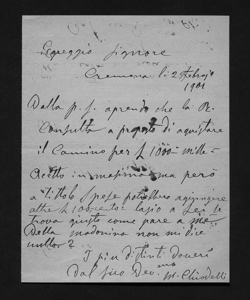 Egreggio Signore
Cremona li 2 Febrajo
1901
Dalla p. s. aprendo che la R.
Consulta a proposto di aquistare
il Camino per £ 1000 mille
Acetto in massima però
a titolo spese potrebbero agiungere
altre £
trova giusto come pare a me
Della madonina non mi dice
nulla?
I più distinti doveri
Dal suo Dev.